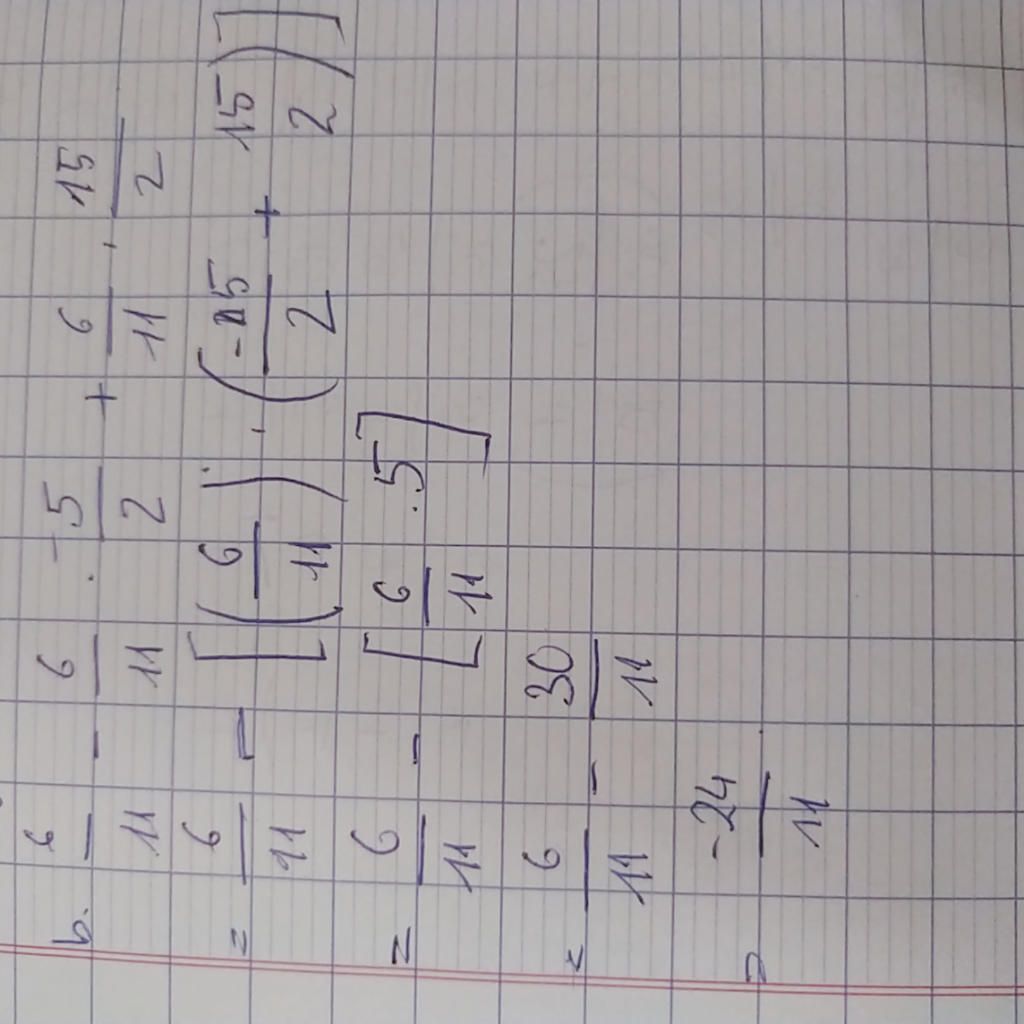 b. 6/11 - 6/11 . -5/2 + 6/11 . 15/2
= 6/11 - [(6/11) . (-5/2 + 15/2)]
= 6/11 - [6/11 . 5]
= 6/11 - 30/11
= -24/11